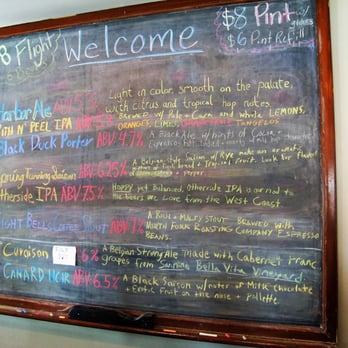 8 Flight
Welcome
$8 Pint w/
$6 Pint Refill
Harbor Ale ABV 5% Light in color, smooth on the palate,
with citrus and tropical hop notes.
N' PEEL IPA BREWED w/ Palm and whole LEMONS,
ORANGES, LIMES, TANGELOS
Black Duck Porter ABV 4.7% A Black Ale w/ hints of Cocoa +
Espresso
Spring Running Saison ABV 6.25% A Belgian Style Saison w/ RYE
Tropical Fruit. Look for
+ pepper
Otherside IPA ABV 7.5% Happy yet Balanced, Otherside IPA is our nod to
the beers we love from the West Coast
Eight Bells Stout ABV 7% A Rich + Malty Stout Brewed with
North Fork Roasting Company Espresso
Beans.
Cuvaison 6% A Belgian Strong Ale made with Cabernet Franc
grapes from Sannino Bella Vita Vineyard
CANARD NOIR ABV 6.5% A Black Saison w/ notes of Milk Chocolate
+ Exotic Fruit on the nose + Pallette.